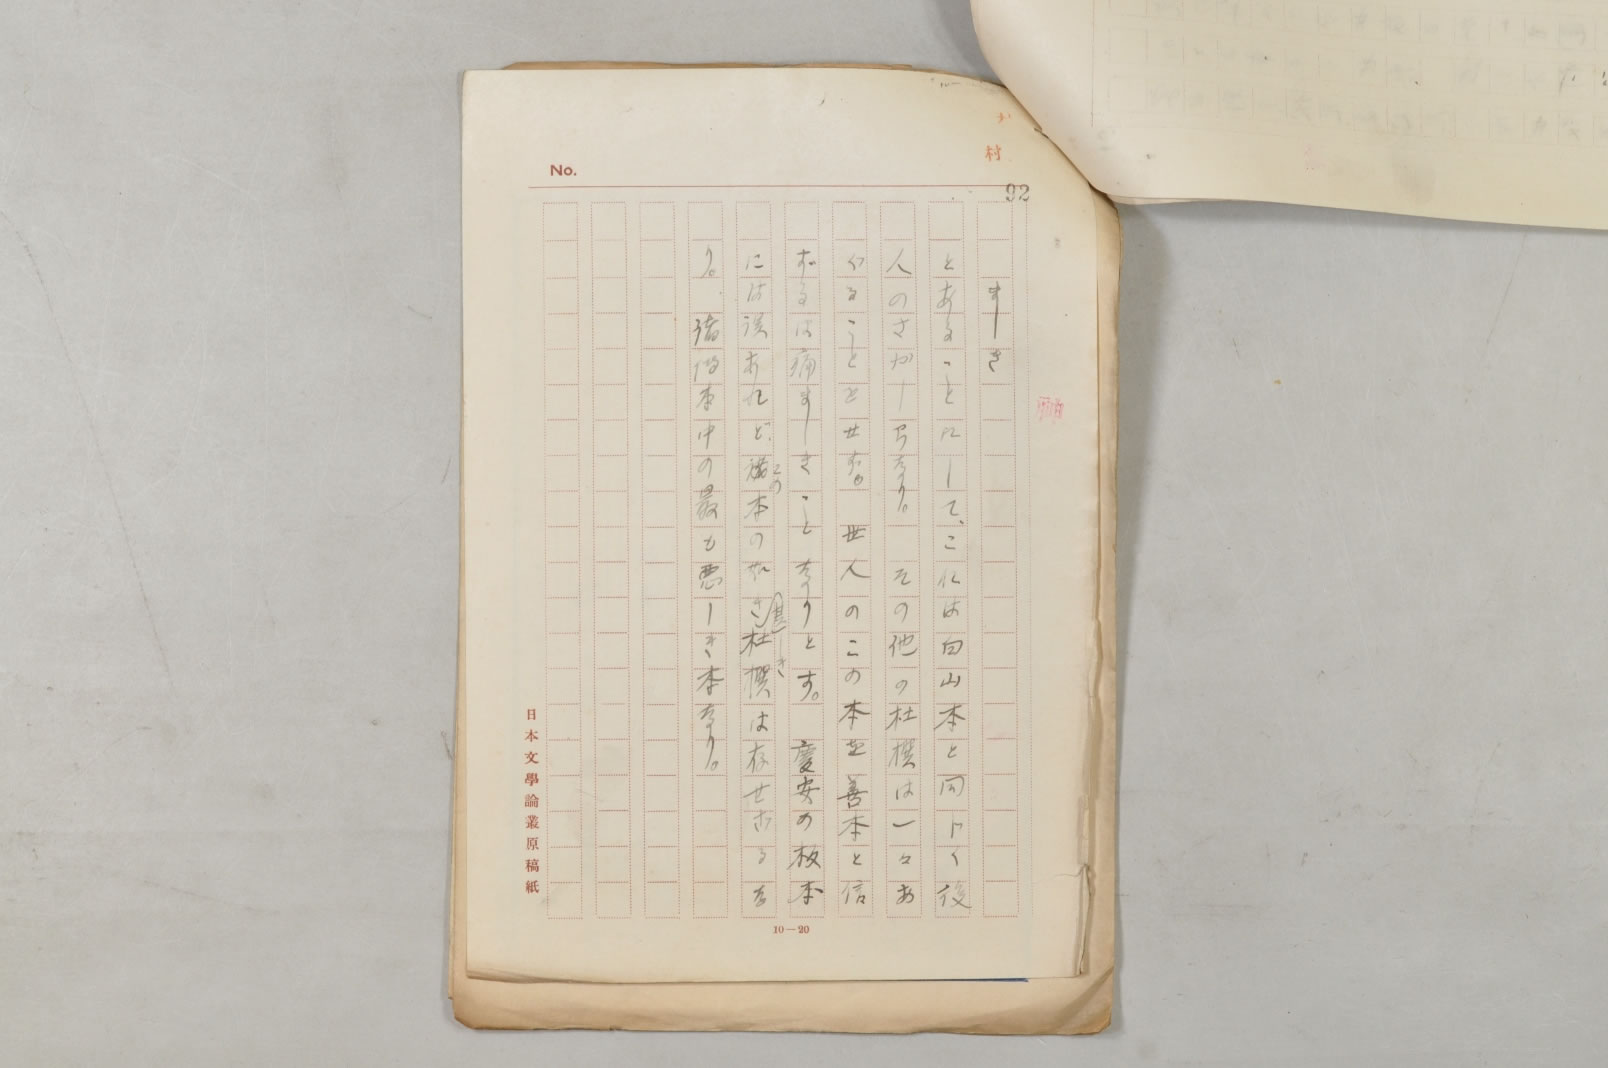 No.
92
ましき
とあることにして、こには白山本と同じく後
人のさかしらなり。その他の杜撰は一々あ
ぐることをせず。世人のこの本を善本と信
ずるは痛ましきことなりとす。慶安の板本
には誤あれど、この本の如き甚しき杜撰は存せざるな
り。諸伝本中の最も悪しき本なり。
日本文學論叢原稿紙
10—20